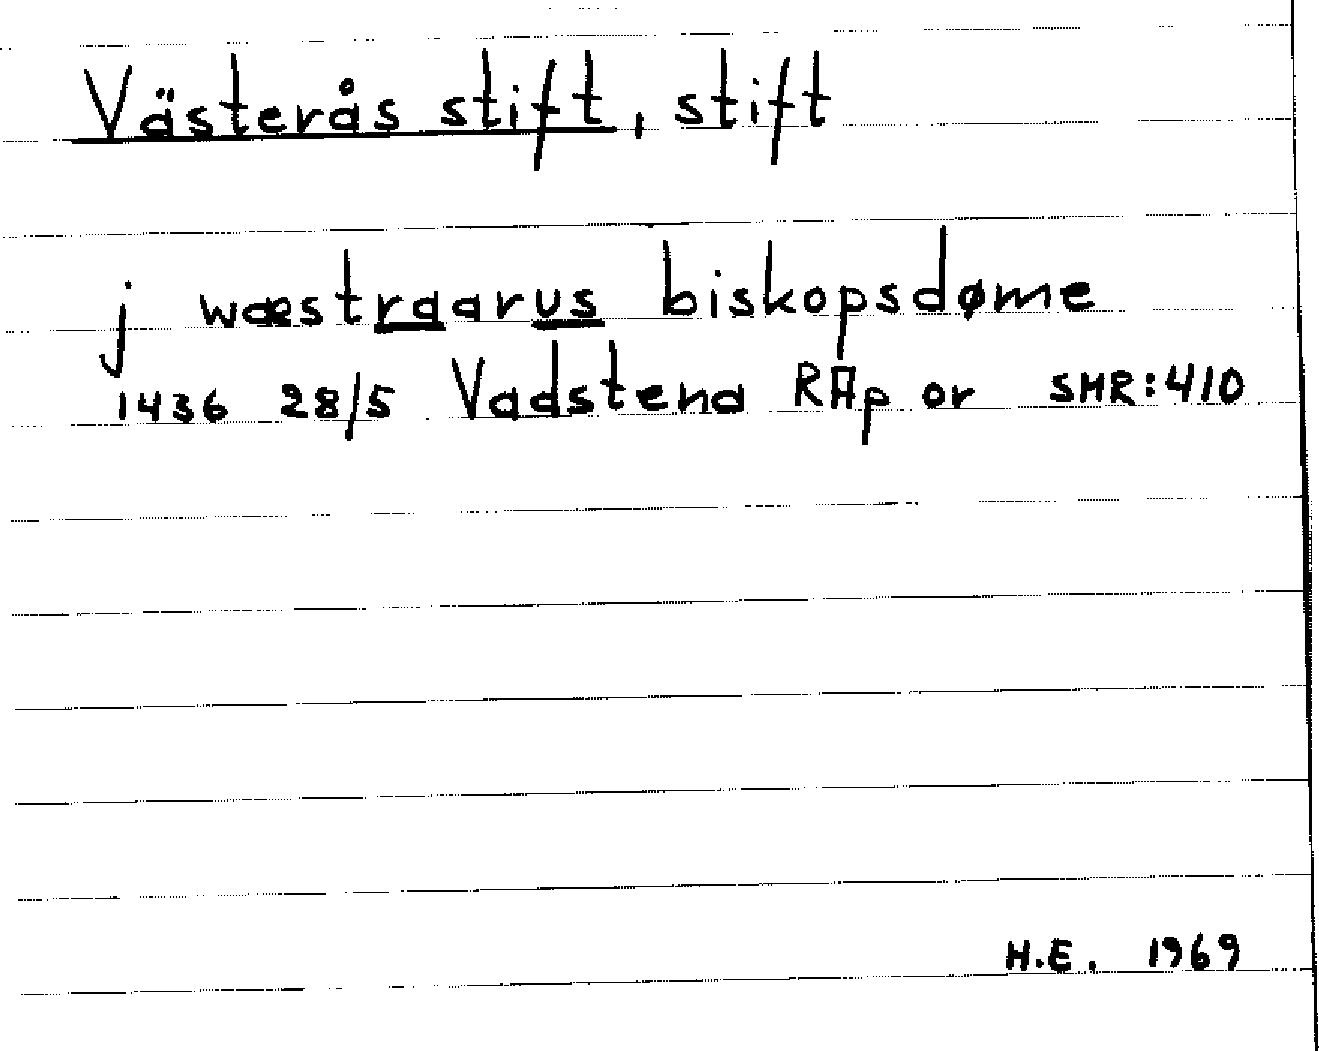 Västerås stift, stift
j wæstraarus biskopsdøme
1436 28/5 Vadstena RAp or SMR:410
H.E. 1969